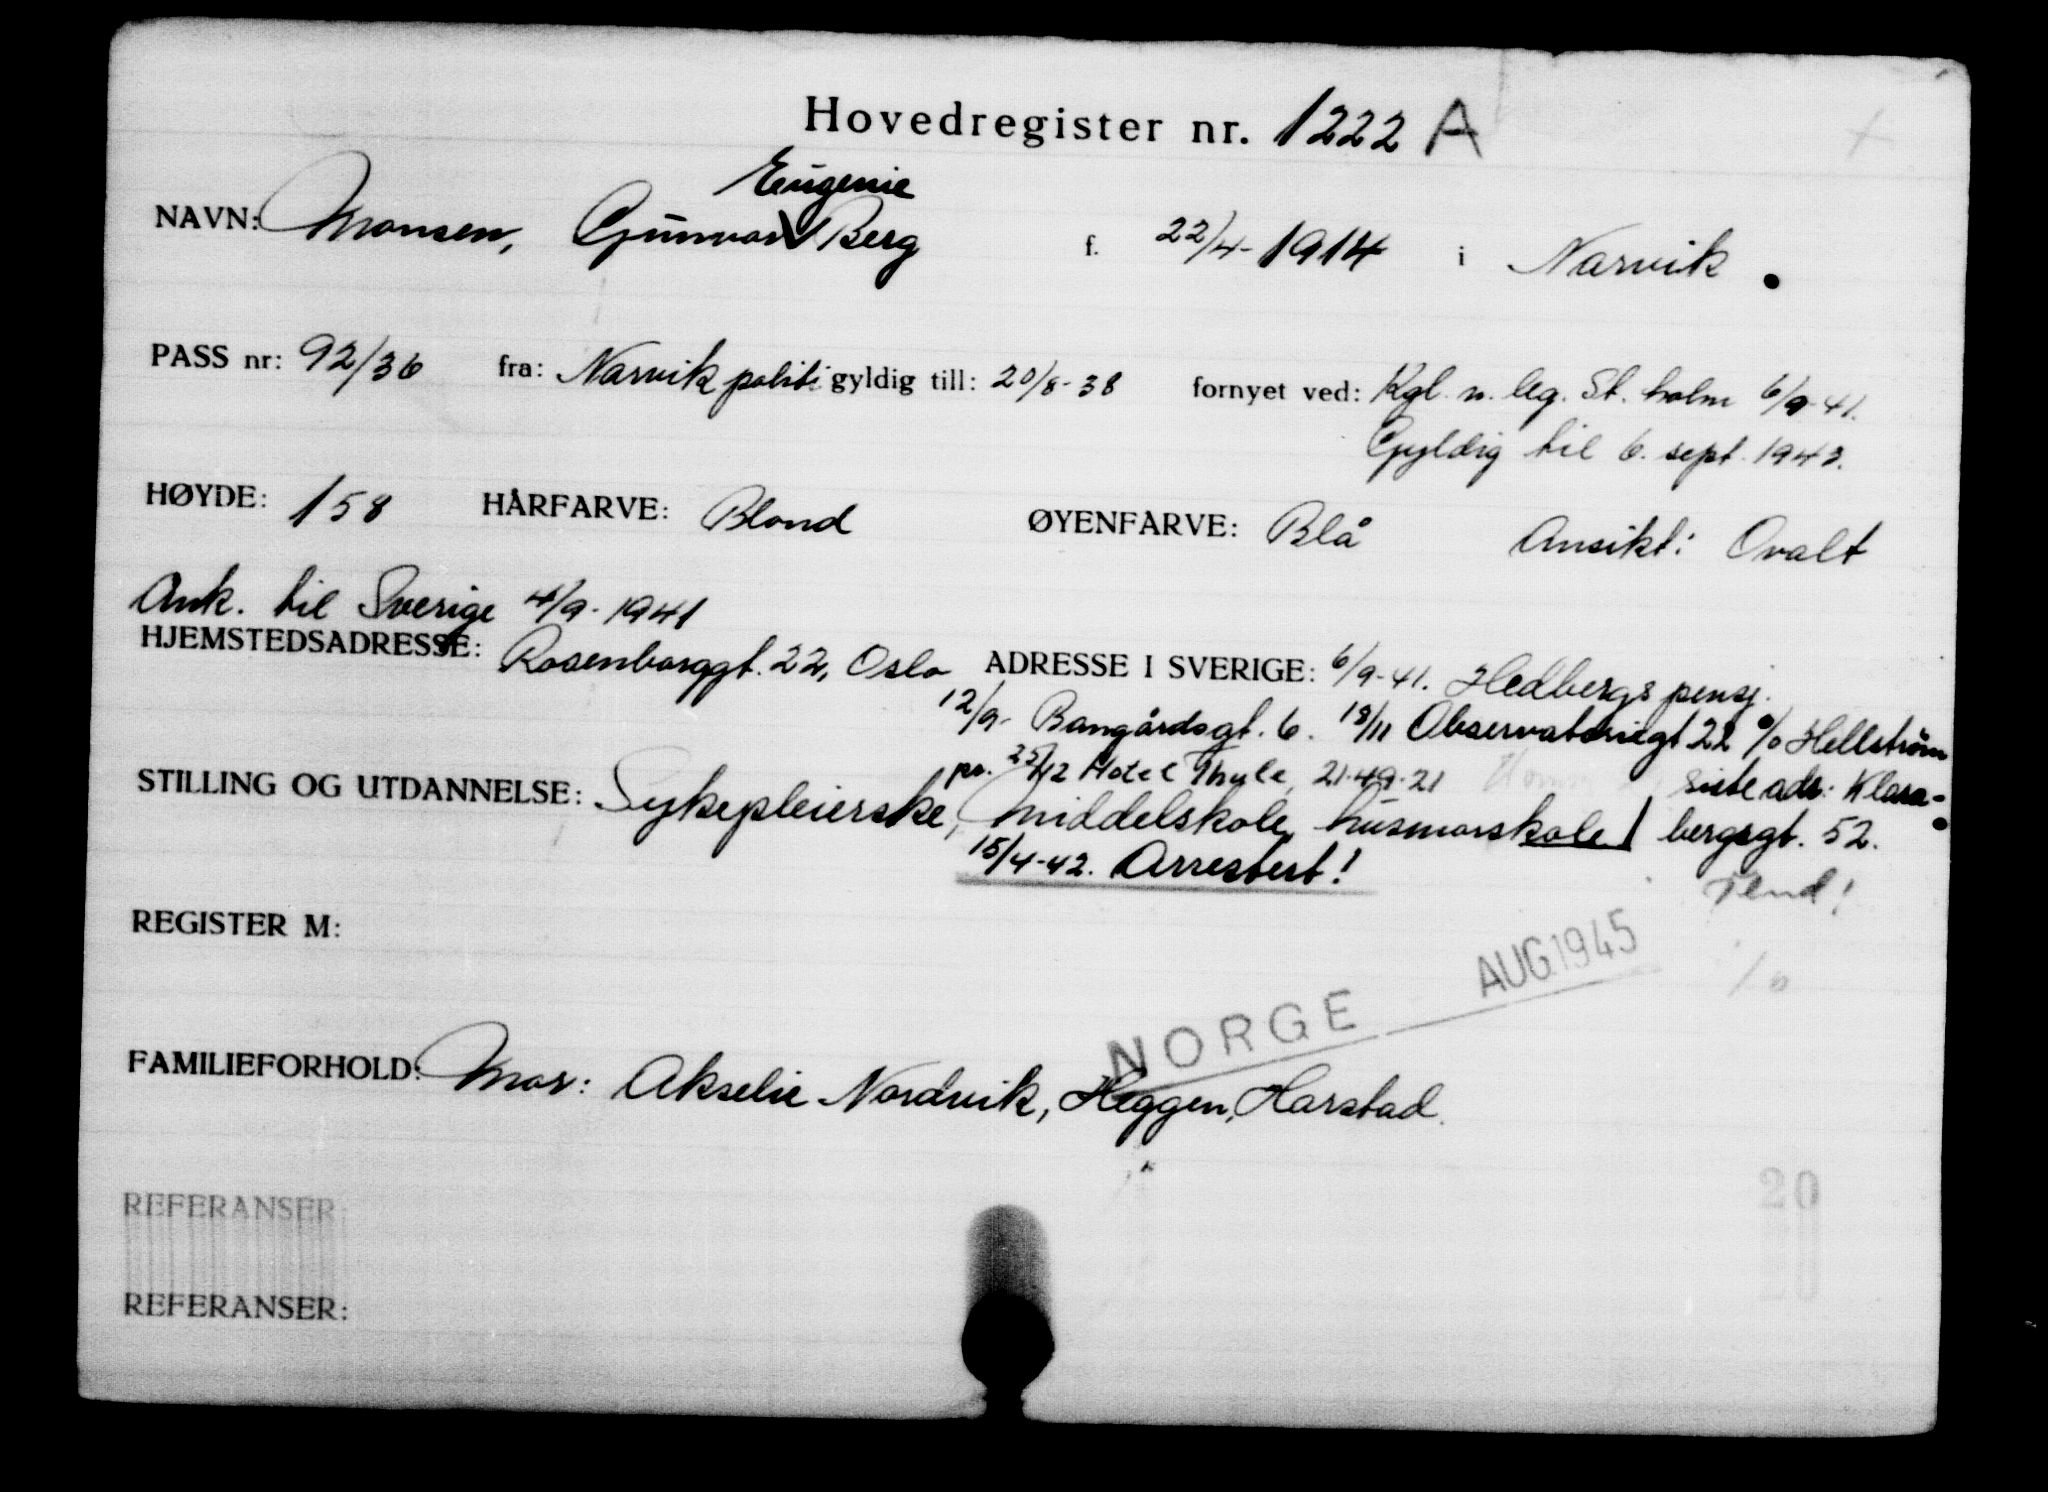 Hovedregister nr. 1222 A
Eugenie
NAVN: Monsen, Gunvor V Berg f. 22/4-1914 i Narvik.
PASS nr: 92/36 fra: Narvik politi gyldig till: 20/8-38 fornyet ved: Kgl. n. leg. St.holm 6/9-41.
Gyldig til 6. sept. 1943.
HØYDE: 158 HÅRFARVE: Blond ØYENFARVE: Blå Ansikt: Ovalt
Ank. til Sverige 4/9-1941
HJEMSTEDSADRESSE: Rosenborggt. 22, Oslo ADRESSE I SVERIGE: 6/9-41. Hedbergs pensj.
12/9- Bangårdsgt. 6. 18/11 Observatoriegt 22 c/o Hellström
pr. 25/12 Hotel Thule, 21-49-21 siste adr: Klara-
STILLING OG UTDANNELSE: Sykepleierske, Middelskole, husmorskole bergsgt. 52.
15/4-42. Arrestert!
REGISTER M:
NORGE AUG.1945
FAMILIEFORHOLD: Mor: Akselie Nordvik, Heggen, Harstad.
REFERANSER:
20
REFERANSER: